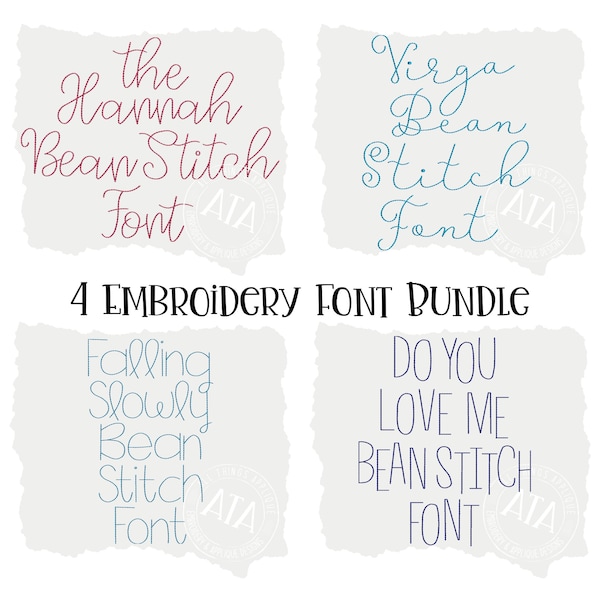 the
Hannah
Bean Stitch
Font
ATA
Virga
Bean
Stitch
Font
ATA
4 EMBROIDERY FONT BUNDLE
Falling
Slowly
Bean
Stitch
Font
ATA
DO YOU
LOVE ME
BEAN STITCH
FONT
ATA